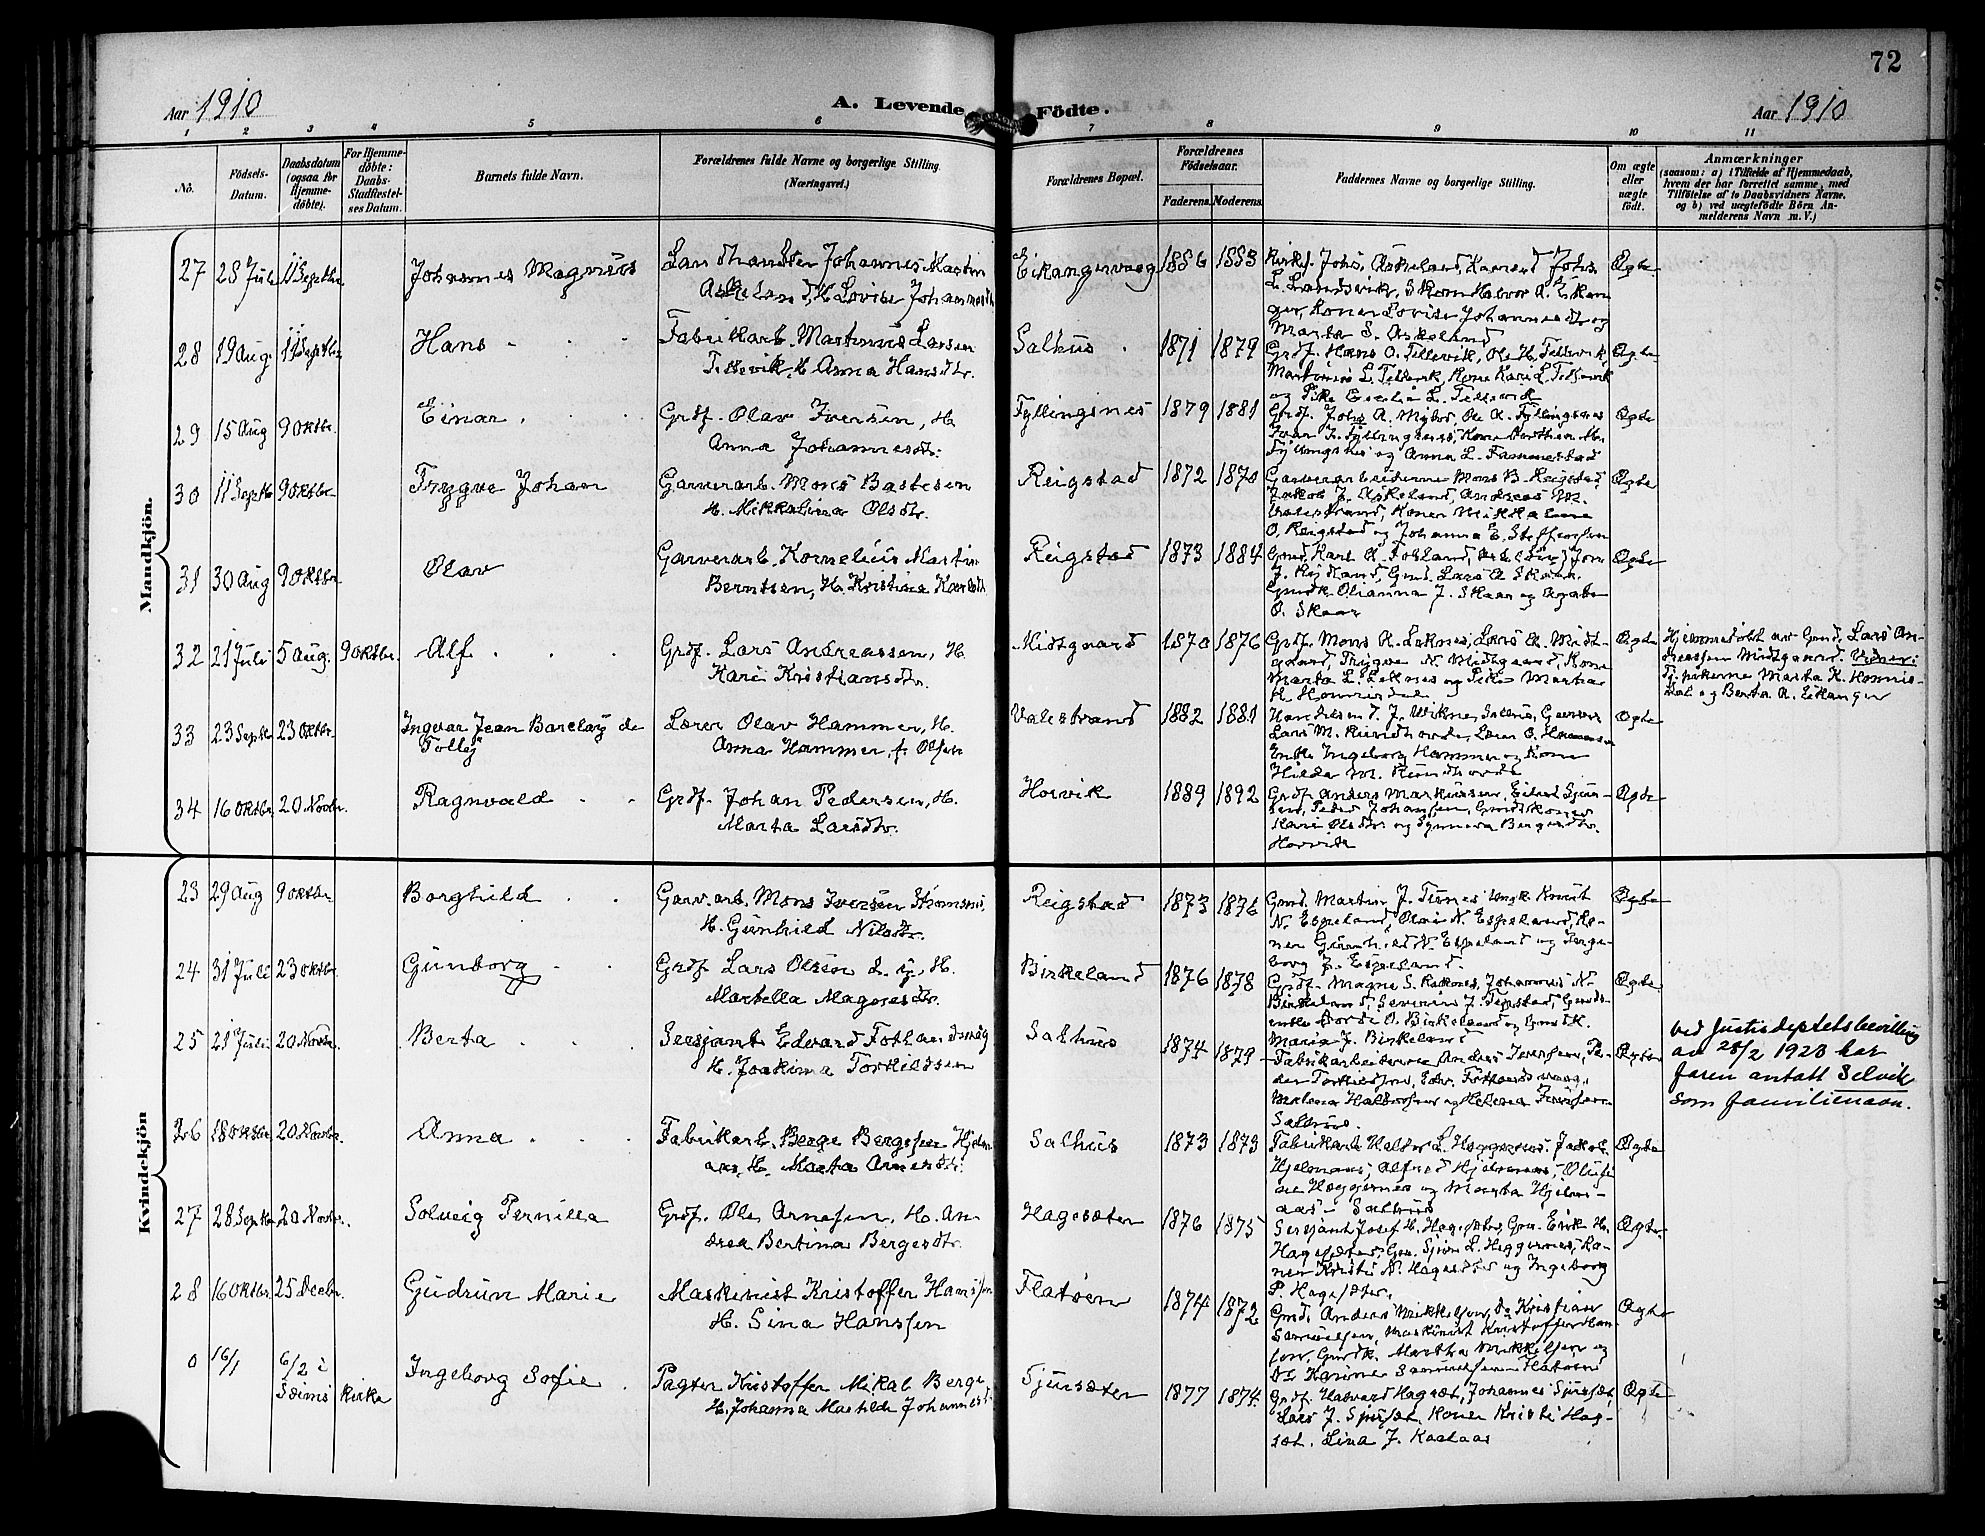 72
Aar 1910
A. Levende Födte.
Aar 1910
1 2 3 4 5 6 7 8 9 10 11
No.
Födsels-
Datum.
Daabsdatum
(ogsaa for
Hjemme-
döbte).
For Hjemme-
döbte:
Daabs-
Stadfæstel-
ses Datum.
Barnets fulde Navn.
Forældrenes fulde Navne og borgerlige Stilling.
(Næringsvei.)
Forældrenes Bopæl.
Forældrenes
Födselsaar.
Faderens. Moderens.
Faddernes Navne og borgerlige Stilling.
Om ægte
eller
uægte
födt.
Anmærkninger
(saasom: a) i Tilfælde af Hjemmedaab,
hvem der har forrettet samme, med
Tilföielse af to Daabsvidners Navne.
og b) ved uægtefödte Börn An-
melderens Navn m. V.)
Mandkjön.
27 28 Juli 11 Septbr. Johannes Magnus
Johannes Martin
Askeland, H. Lovise Johannesdtr.
Eikangervaag 1886 1883
Johs. Askeland,
Marta S. Askeland
Ægte
28 19 Aug. 11 Septbr. Hans
Fabrikarb. Martinus Larsen
Tellevik, H. Anna Hansdtr.
Salhus 1871 1879
Grdf. Hans O. Tellevik, Ole H. Tellevik,
Martinus L. Tellevik, Kone Kari L. Tellevik
og Pike Cecilia L. Tellevik
Ægte
29 15 Aug 9 Oktbr. Einar
Grdf. Olav Iversen, H.
Anna Johannesdtr.
Fyllingsnes 1879 1881
Grdf. Johs A. Myhre, Ole A. Fyllingsnes
Ivar I. Fyllingsnes, Kone Dorthea M.
Fyllingsnes og Anna L. Tammestad
Ægte
30 11 Septbr 9 Oktbr. Trygve Johan
Garverarb. Mons Bastesen
H. Mikkelina Olsdtr.
Reigstad 1872 1870
Garverarbeiderne Mons B. Reigstad,
Jakob J. Askeland, Andreas M.
Valestrand, Koner Mikkeline
O. Reigstad og Johanna E. Steffensen
Ægte
31 30 Aug 9 Oktbr. Olav
Garverarb. Kornelius Martin
Berntsen, H. Kristine Karlsdtr
Reigstad 1873 1884
Gmd. Karl A.
Gmd. Lars A Skaar
Gmdk. Olianna J. Skaar og Agate
O. Skaar
Ægte
32 21 Juli 5 Aug. 9 Oktbr. Alf
Grdf. Lars Andreassen, H.
Kari Kristiansdtr.
Midtgaard 1870 1876
Grdf. Mons R. Leknes, Lars A. Midt-
gaard, Trygve N. Midtgaard, Kone
Marta L. Leknes og Pike Marta
K. Honnisdal
Ægte
Hjemmedøbt av Gmd. Lars An-
dreassen Midtgaard. Vidner:
Pikerne Marta K. Honnis-
dal og Berta A. Eikanger
33 23 Septbr 23 Oktbr. Ingvar Jean Barclay de
Tolly
Lærer Olav Hammer, H.
Anna Hammer, f. Olsen
Valestrand 1882 1881
Handelsmd. J. Wiknes, Salhus, Garver
Lars M. Rundhovde, Lærer O. Hammer
Enke Ingeborg Hammer og Kone
Hilda M. Rundhovde
Ægte
34 16 Oktbr. 20 Novbr. Ragnvald
Grdf. Johan Pedersen, H.
Marta Larsdtr.
Horvik 1889 1892
Grdf. Anders Markussen, Eilert Sjur-
sen, Peder Johansen, Gmdskoner
Kari Olsdtr. og Synneva Bergesdtr.
Horvik
Ægte
Kvindekjön
23 29 Aug 9 Oktbr. Borghild
Garv.arb. Mons Iversen
H. Gunhild Nilsdtr.
Reigstad 1873 1876
Gmd. Martin J. Ternes Ungk Knut
N. Espeland, Olai N. Espeland, Ko-
ner Gunhild N. Espeland og Inge-
borg J. Espeland.
Ægte
24 31 Juli 23 Oktbr. Gunborg
Grdf. Lars Olsen d. y., H.
Martella Magnesdtr.
Birkeland 1876 1878
Grdf. Magne S. Raknes, Johannes N.
Birkeland, Severin J. Tepstad, Gmds-
enke Dorde O. Birkeland og Gmdk.
Maria J. Birkeland
Ægte
25 21 Juli 20 Novbr. Berta
Sersjant Edvard Fotlandsvåg
H. Joakima Torkildsen
Salhus 1874 1879
Fabrikarbeiderne Anders Iversen, Pe-
der Torkildsen, Edv. Fotlandsvaag,
Malena Halvorsen og Helena Iversen
Salhus.
Ægte
Ved Justisdeptets bevilling
av 28/2 1923 har
faren antatt Selvik
som familienavn.
26 18 Oktbr. 20 Novbr. Anna
Fabrikarb. Berge Bergesen Hjelm-
aas, H. Marta Arnesdtr.
Salhus 1873 1873
Fabrikarb. Halvor L. Heggernes, Jakob
Hjelmaas, Alfred Hjelmaas, Olufi-
ne Heggernes og Marta Hjelm-
aas - Salhus
Ægte
27 28 Septbr 20 Novbr. Solveig Pernilla
Grdf. Ole Arnesen, H. An-
drea Bertina Bergesdtr.
Hagesæter 1876 1875
Sersjant Josef H. Hagesæter, Gm. Eirik H.
Hagesæter, Gm. Sjur L. Heggernes, Ko-
ner Kristi N. Hagesæter og Ingeborg
P. Hagesæter.
Ægte
28 16 Oktbr. 25 Decbr. Gudrun Marie
Maskinist Kristoffer Hanssen
H. Sina Hanssen
Flatøen 1874 1872
Gmd. Anders Mikkelsen, do Kristian
Samuelsen, Maskinist Kristoffer Han-
sen, Gmdk. Martha Mikkelsen og
do Karinne Samuelsen Flatøen
Ægte
0 16/1 6/2 i
Seims Kirke
Ingeborg Sofie
Pagter Kristoffer Mikal Berge
H. Johanna Matilde Johannesd.
Sjursæter 1877 1874.
Grdf. Halvard Hagesæt, Johannes Sjursæt,
Lars J. Sjursæt, Koner Kristi Hag-
sæt, Lina J. Kaalaas
Ægte